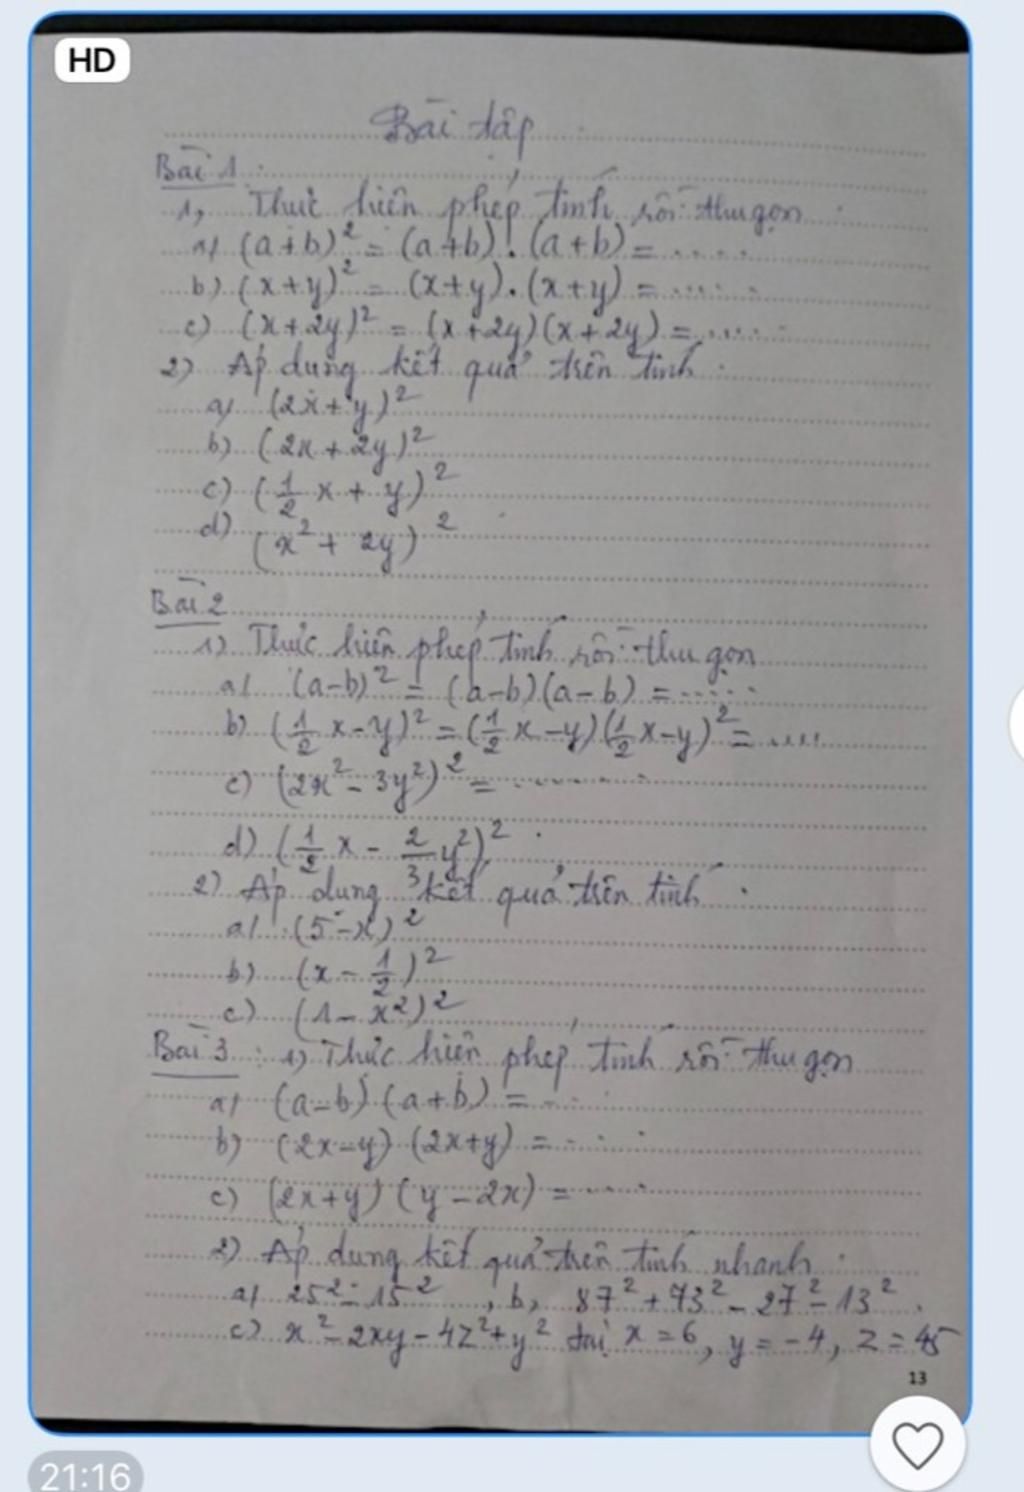 HD
Bài tập
Bài 1:
1, Thực hiện phép tính rồi thu gọn
a) (a+b)² = (a+b).(a+b) = .....
b) (x+y)² = (x+y).(x+y) = ......
c) (x+2y)² = (x+2y)(x+2y) = ......
2) Áp dụng kết quả trên tính
a) (2x+y)²
b) (2x+2y)²
c) (1/2 x + y)²
d) (x² + 2y)²
Bài 2
1) Thực hiện phép tính rồi thu gọn
a) (a-b)² = (a-b)(a-b) = ......
b) (1/2 x - y)² = (1/2 x - y)(1/2 x - y)² = ....
c) (2x² - 3y²)² = ..........
d) (1/2 x - 2/3 y²)².
2) Áp dụng kết quả trên tính
a) (5-x)²
b) (x - 1/2)²
c) (1 - x²)²
Bài 3: 1) Thực hiện phép tính rồi thu gọn
a) (a-b)(a+b) = ...
b) (2x-y)(2x+y) = ....
c) (2x+y)(y-2x) = .....
2) Áp dụng kết quả trên tính nhanh
a) 25² - 15², b, 87² + 73² - 27² - 13².
c) x² - 2xy - 4z² + y² tại x = 6, y = -4, z = 45
13
21:16